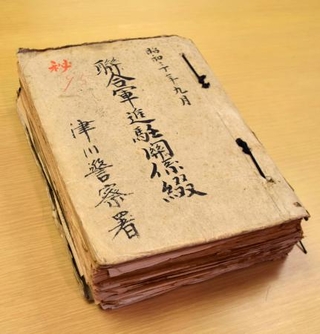 昭和二十年九月
聯合軍進駐関係綴
津川警察署
秘